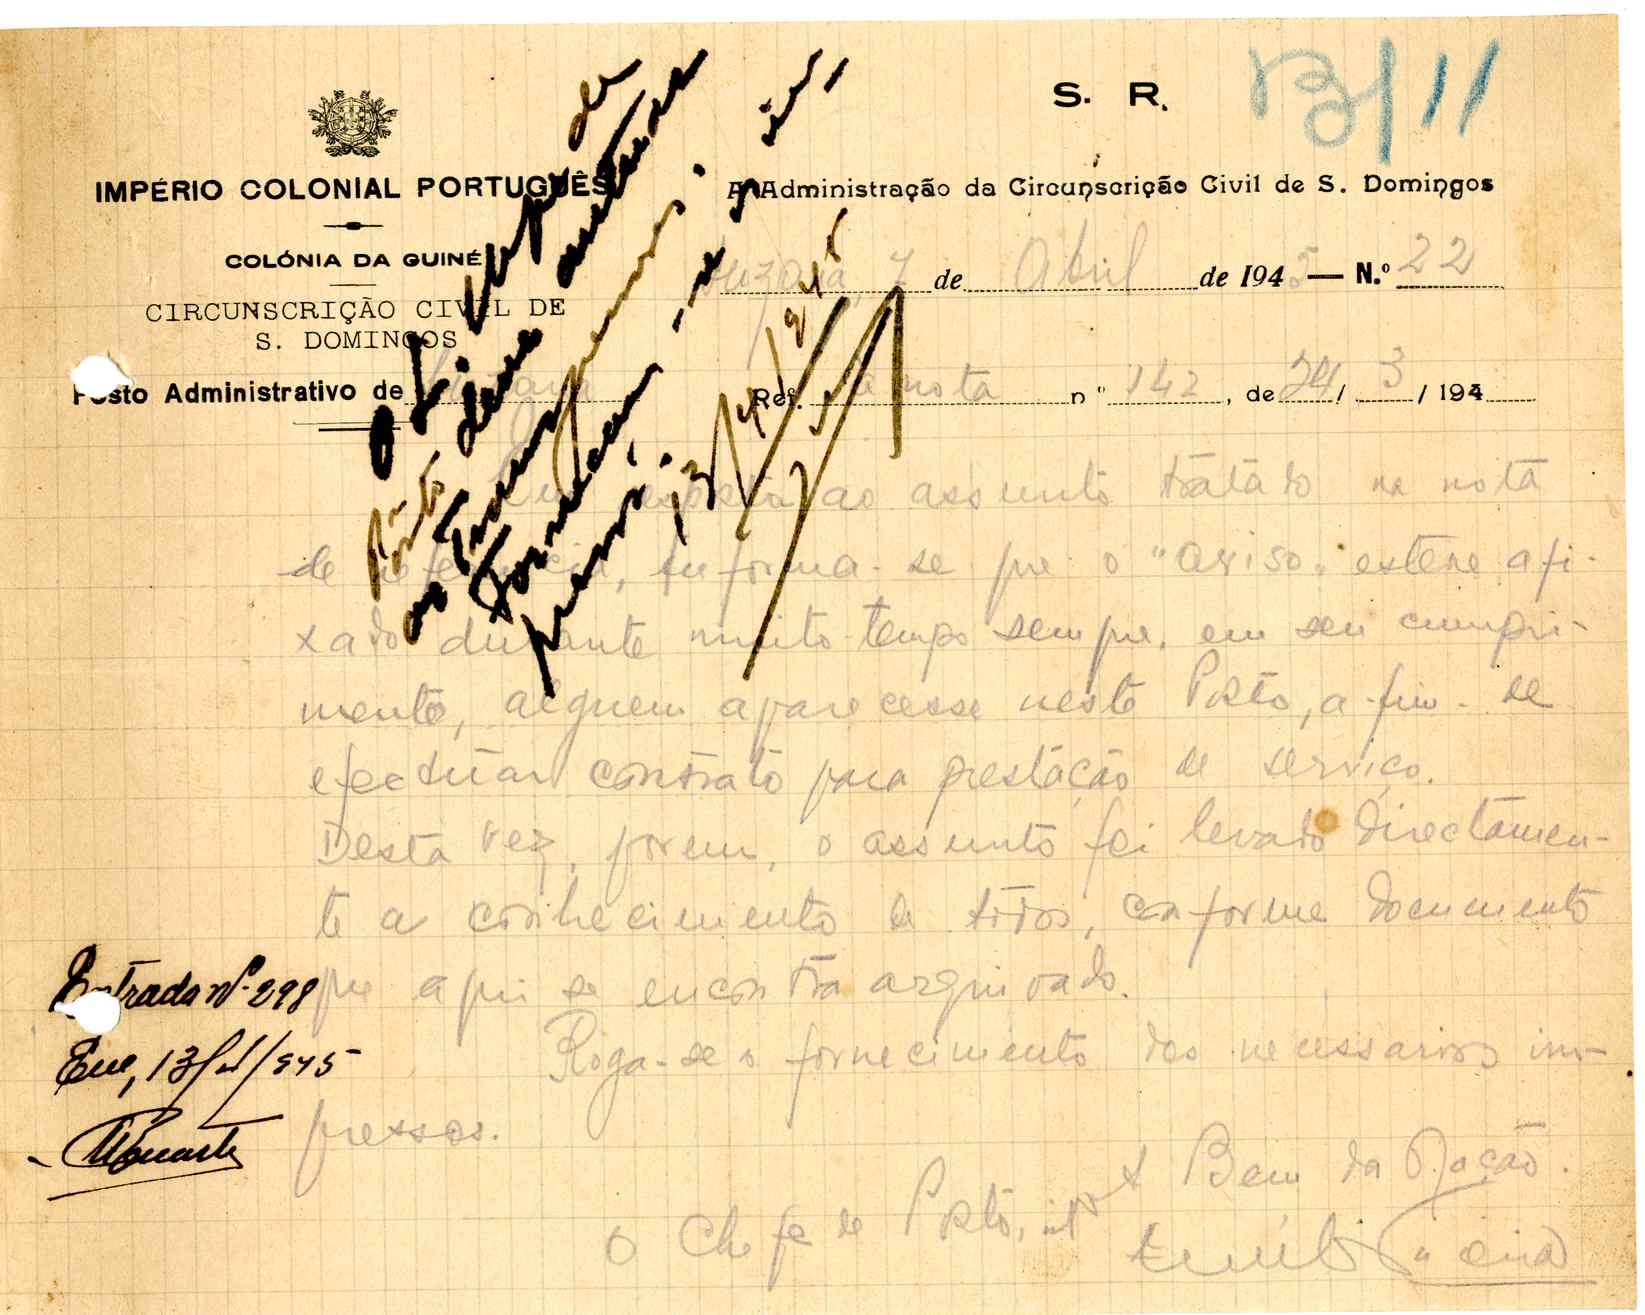 B/11
S. R.
IMPÉRIO COLONIAL PORTUGUÊS
COLÓNIA DA GUINÉ
CIRCUNSCRIÇÃO CIVIL DE
S. DOMINGOS
Posto Administrativo de Suzana
À Administração da Circunscrição Civil de S. Domingos
Suzana, 7 de Abril de 1945 — N.º 22
Ref. a nota nº 142, de 24/ 3 / 194
Em resposta ao assunto tratado na nota
de referencia, informa-se que o "aviso" esteve afi-
xado durante muito tempo sem que, em seu cumpri-
mento, alguem aparecesse neste Posto, a-fim-de
efectuar contrato para prestação de serviço.
Desta vez, porem, o assunto foi levado directamen-
te a conhecimento de todos, conforme documento
que aqui se encontra arquivado.
Roga-se o fornecimento dos necessarios im-
pressos.
A Bem da Nação.
O Chefe de Posto, intº
Entrada nº 298
Em, 13/4/945
dos
Fornecam-se
13/4/945